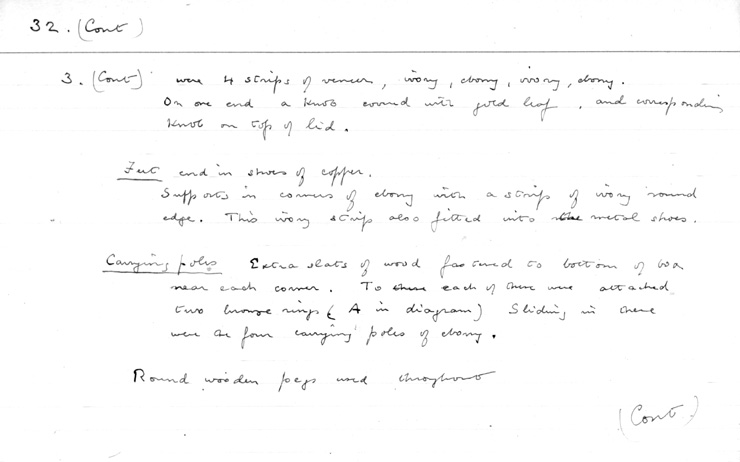 32. (Cont)
3. (Cont) were 4 strips of veneer, ivory, ebony, ivory, ebony.
On one end a knob covered with gold leaf, and corresponding
knob on top of lid.
Feet end in shoes of copper.
Supports in corners of ebony with a strip of ivory round
edge. This ivory strip also fitted into the metal shoes.
Carrying poles Extra slats of wood fastened to bottom of box
near each corner. To these each of these were attached
two bronze rings (A in diagram) Sliding in these
were the four carrying poles of ebony.
Round wooden pegs used throughout
(Cont)